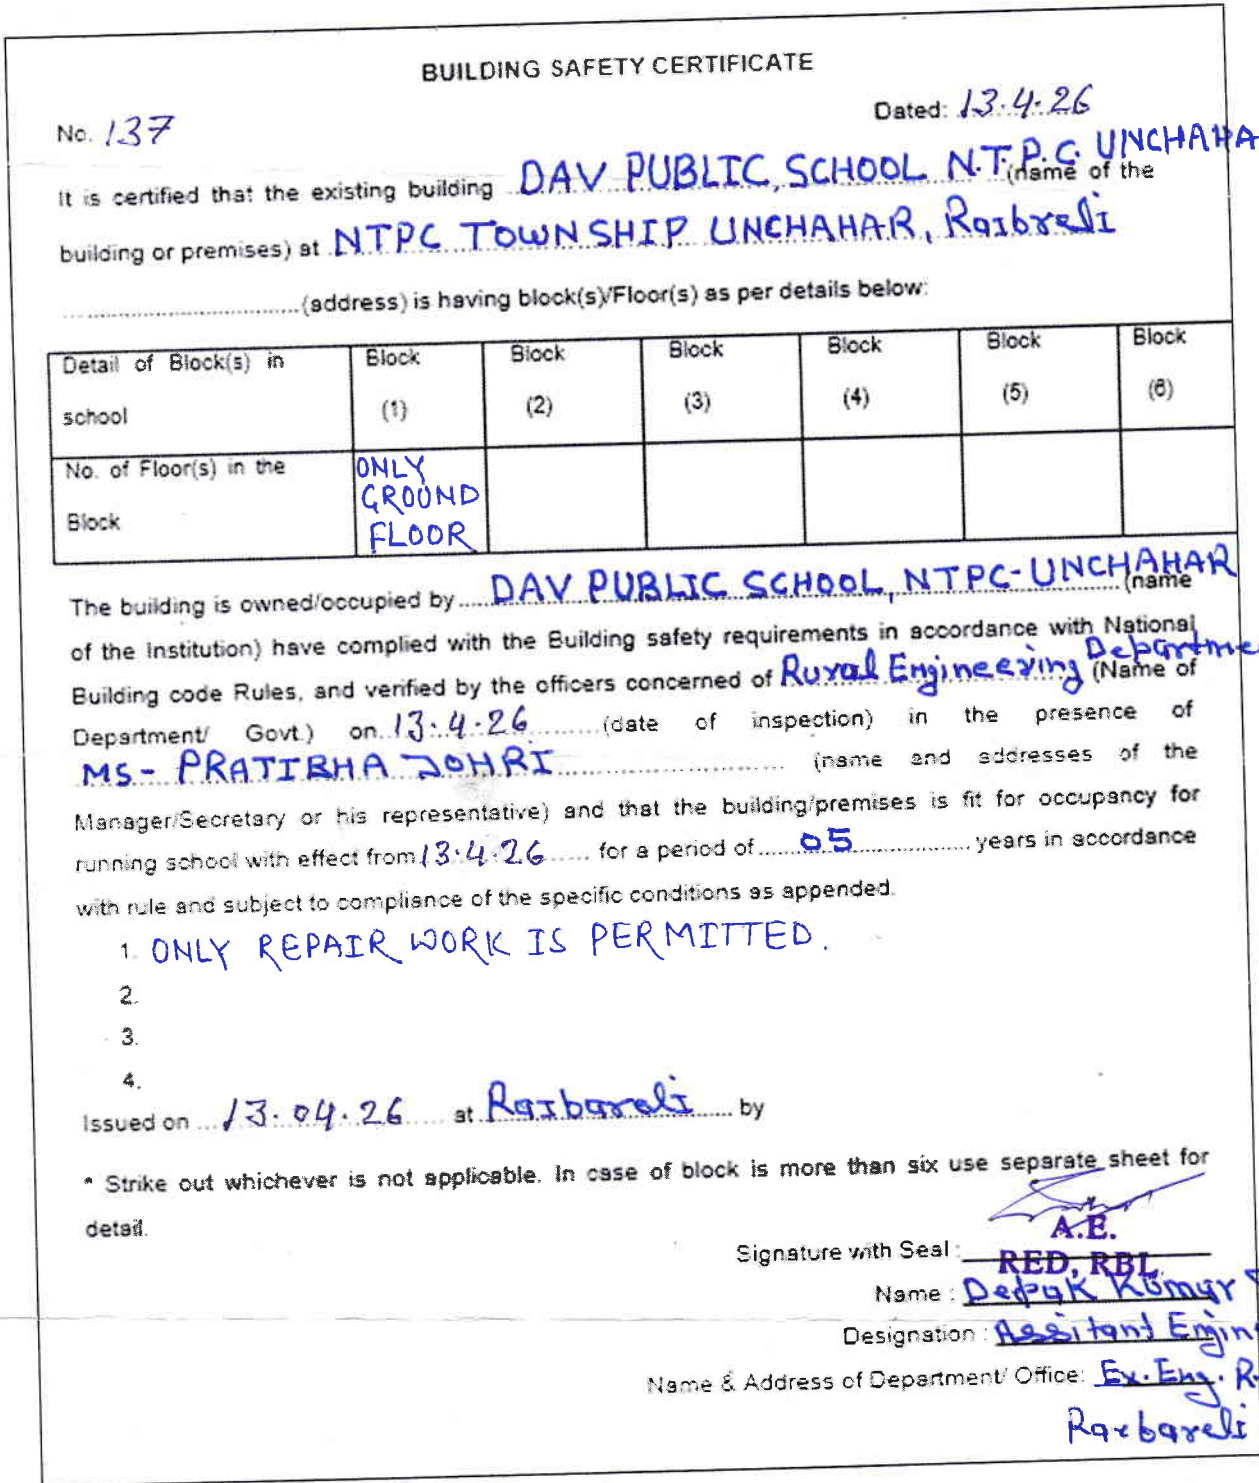 BUILDING SAFETY CERTIFICATE
No. 137 Dated: 13.4.26
It is certified that the existing building DAV PUBLIC SCHOOL N.T.P.C. UNCHAHA (name of the
building or premises) at NTPC TOWNSHIP UNCHAHAR, Raibreli
(address) is having block(s)/Floor(s) as per details below:
Detail of Block(s) in school Block (1) Block (2) Block (3) Block (4) Block (5) Block (6)
No. of Floor(s) in the Block ONLY GROUND FLOOR
The building is owned/occupied by DAV PUBLIC SCHOOL, NTPC-UNCHAHAR (name
of the Institution) have complied with the Building safety requirements in accordance with National
Building code Rules, and verified by the officers concerned of Rural Engineering Departme (Name of
Department/ Govt.) on 13.4.26 (date of inspection) in the presence of
MS- PRATIBHA JOHRI (name and addresses of the
Manager/Secretary or his representative) and that the building/premises is fit for occupancy for
running school with effect from 13.4.26 for a period of 05 years in accordance
with rule and subject to compliance of the specific conditions as appended.
1. ONLY REPAIR WORK IS PERMITTED.
2.
3.
4.
Issued on 13.04.26 at Raibareli by
* Strike out whichever is not applicable. In case of block is more than six use separate sheet for
detail.
A.E.
Signature with Seal : RED, RBL
Name : Depak Kumar
Designation : Assitant Engin
Name & Address of Department/ Office: Ex. Eng. R.
Raebareli